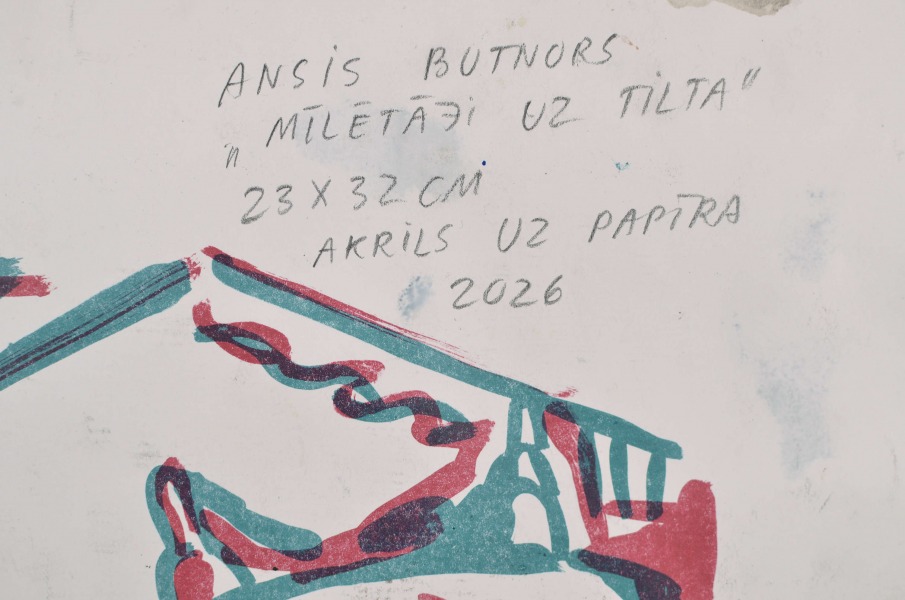 ANSIS BUTNORS
„MĪLĒTĀJI UZ TILTA“
23 X 32 CM
AKRILS UZ PAPĪRA
2026